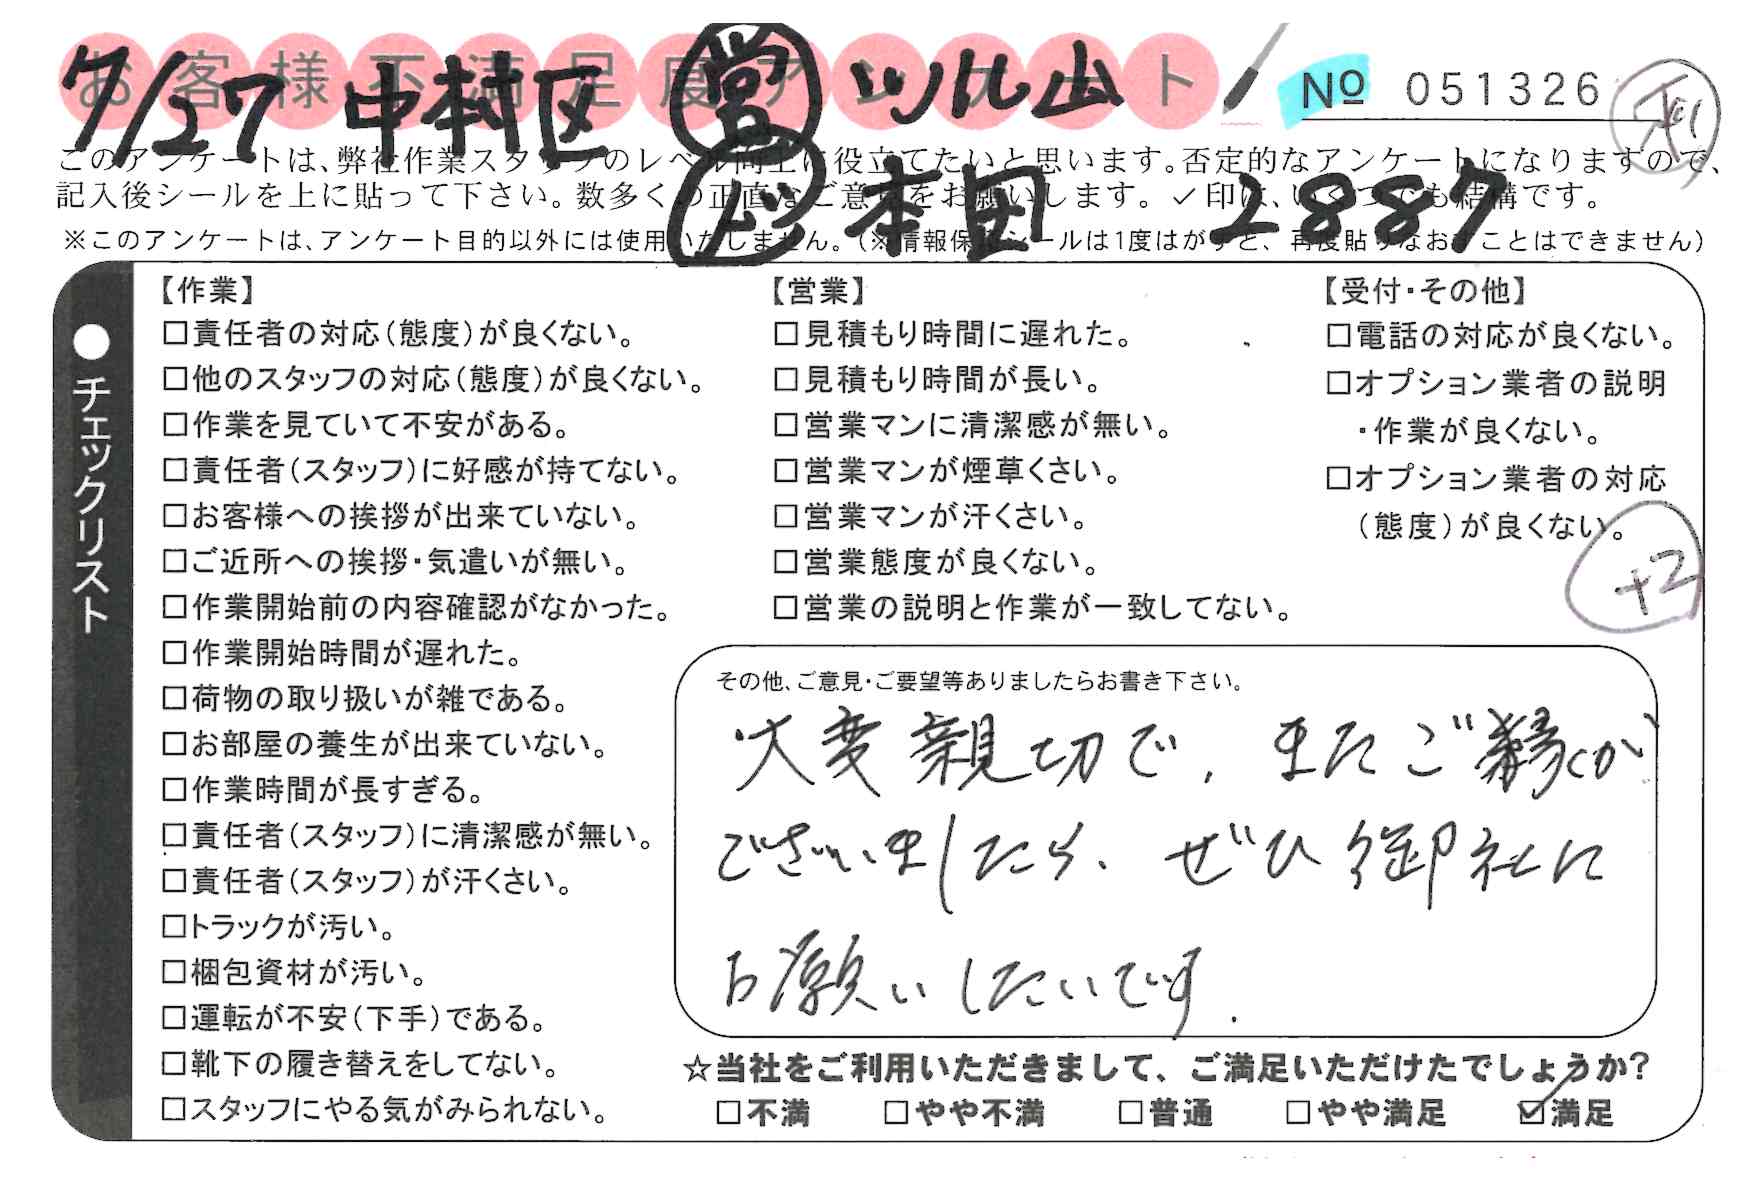 お客様不満足度アンケート
7/27 中村区 営 ツル山
No 051326
本田 2887
このアンケートは、弊社作業スタッフのレベル向上に役立てたいと思います。否定的なアンケートになりますので、
記入後シールを上に貼って下さい。数多くの正直なご意見をお願いします。✓印は、いくつでも結構です。
※このアンケートは、アンケート目的以外には使用いたしません。(※情報保護シールは1度はがすと、再度貼りなおすことはできません)
●チェックリスト
【作業】
□責任者の対応(態度)が良くない。
□他のスタッフの対応(態度)が良くない。
□作業を見ていて不安がある。
□責任者(スタッフ)に好感が持てない。
□お客様への挨拶が出来ていない。
□ご近所への挨拶・気遣いが無い。
□作業開始前の内容確認がなかった。
□作業開始時間が遅れた。
□荷物の取り扱いが雑である。
□お部屋の養生が出来ていない。
□作業時間が長すぎる。
□責任者(スタッフ)に清潔感が無い。
□責任者(スタッフ)が汗くさい。
□トラックが汚い。
□梱包資材が汚い。
□運転が不安(下手)である。
□靴下の履き替えをしてない。
□スタッフにやる気がみられない。
【営業】
□見積もり時間に遅れた。
□見積もり時間が長い。
□営業マンに清潔感が無い。
□営業マンが煙草くさい。
□営業マンが汗くさい。
□営業態度が良くない。
□営業の説明と作業が一致してない。
【受付・その他】
□電話の対応が良くない。
□オプション業者の説明
・作業が良くない。
□オプション業者の対応
(態度)が良くない。
+2
その他、ご意見・ご要望等ありましたらお書き下さい。
大変親切で、またご縁が
ございましたら、ぜひ御社に
お願いしたいです.
☆当社をご利用いただきまして、ご満足いただけたでしょうか?
□不満 □やや不満 □普通 □やや満足 ☑満足